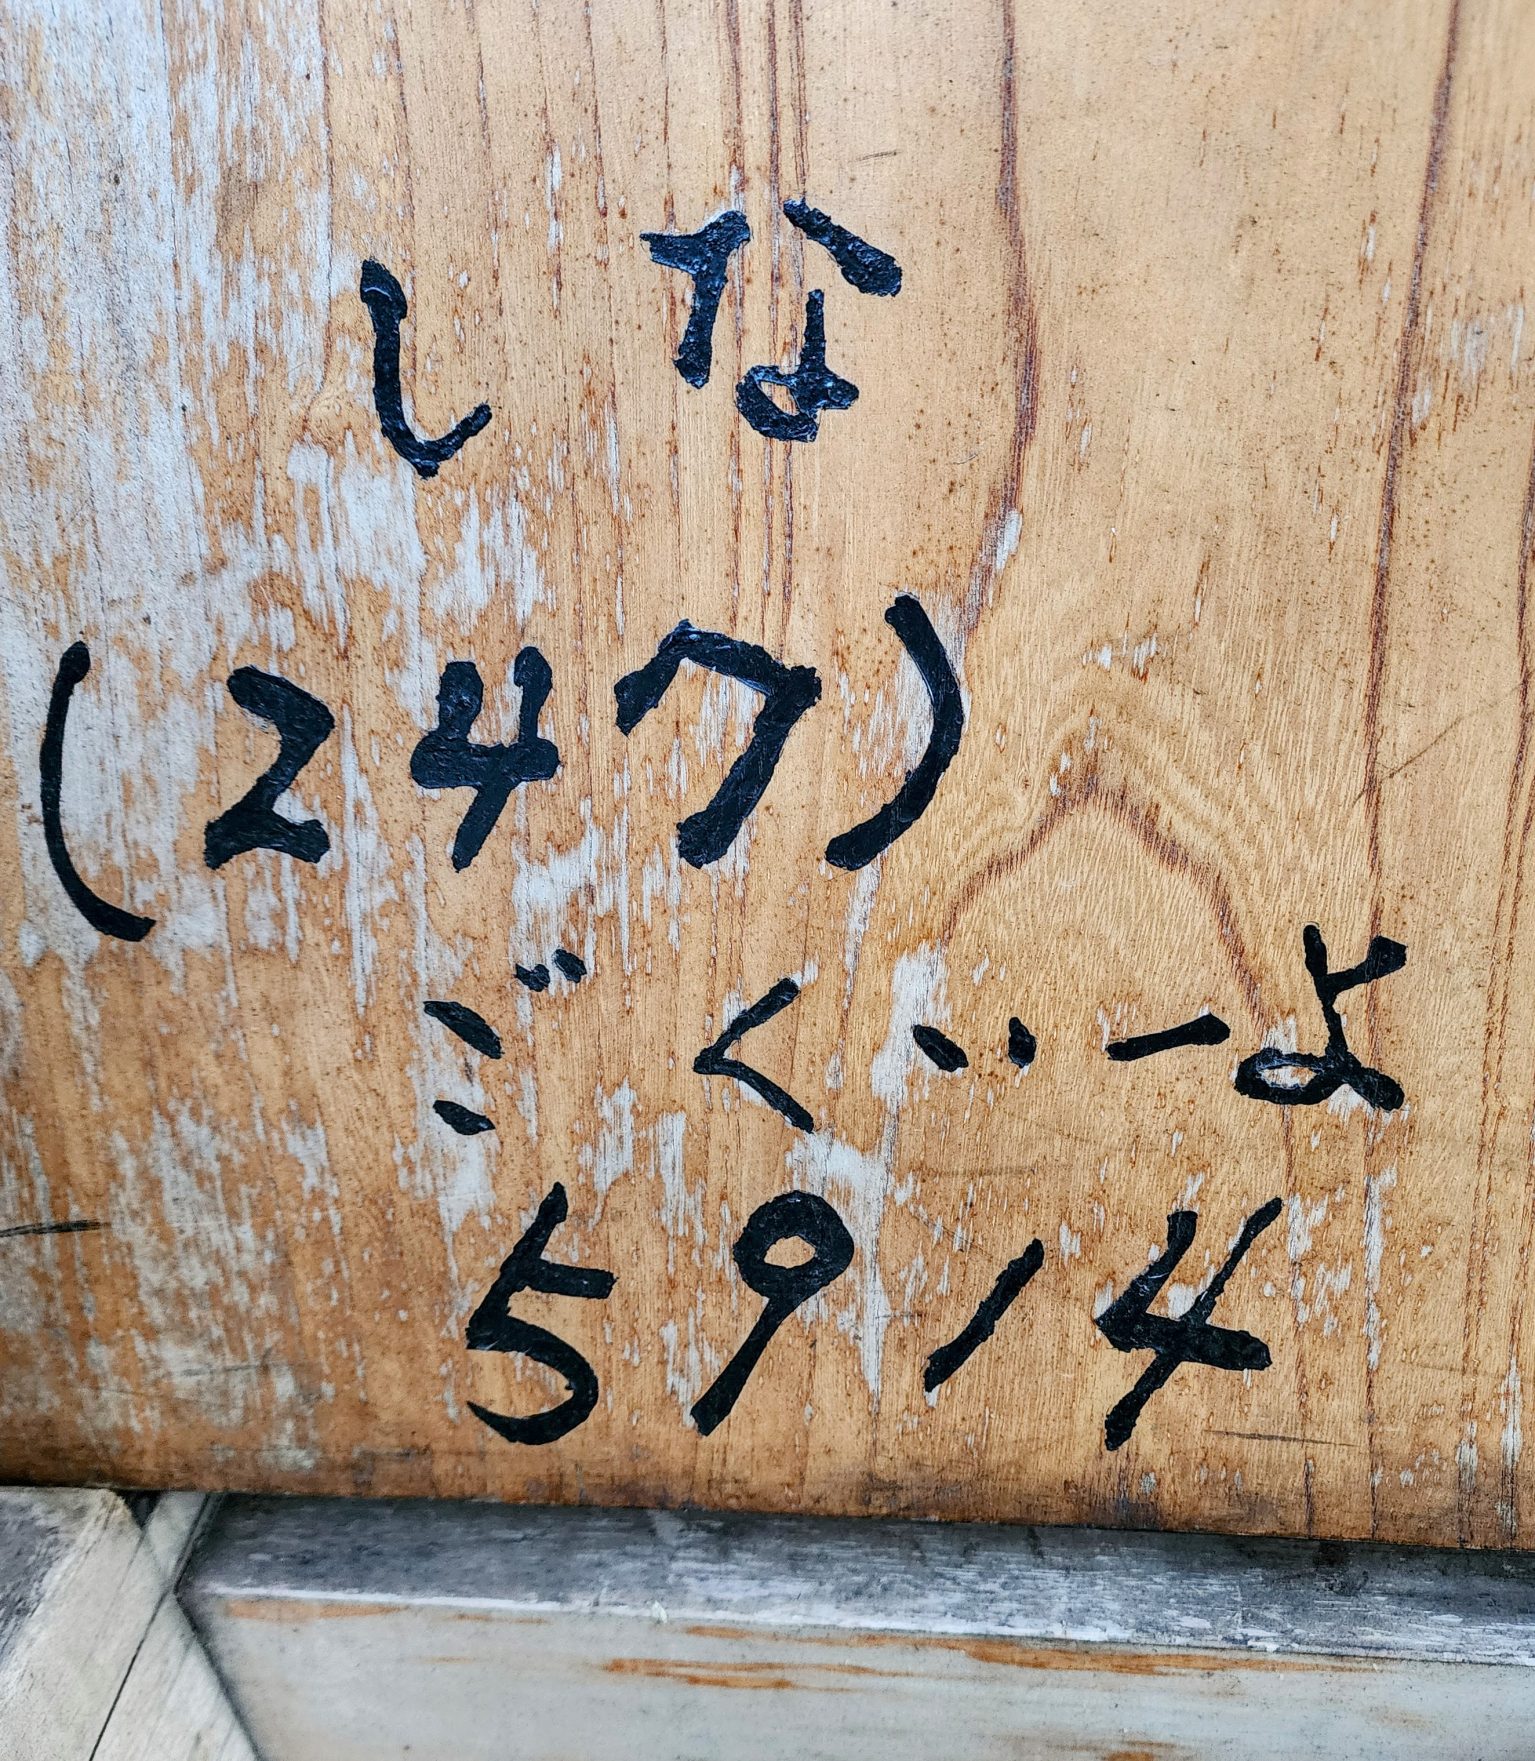 しな
(247)
ごくいーよ
5914